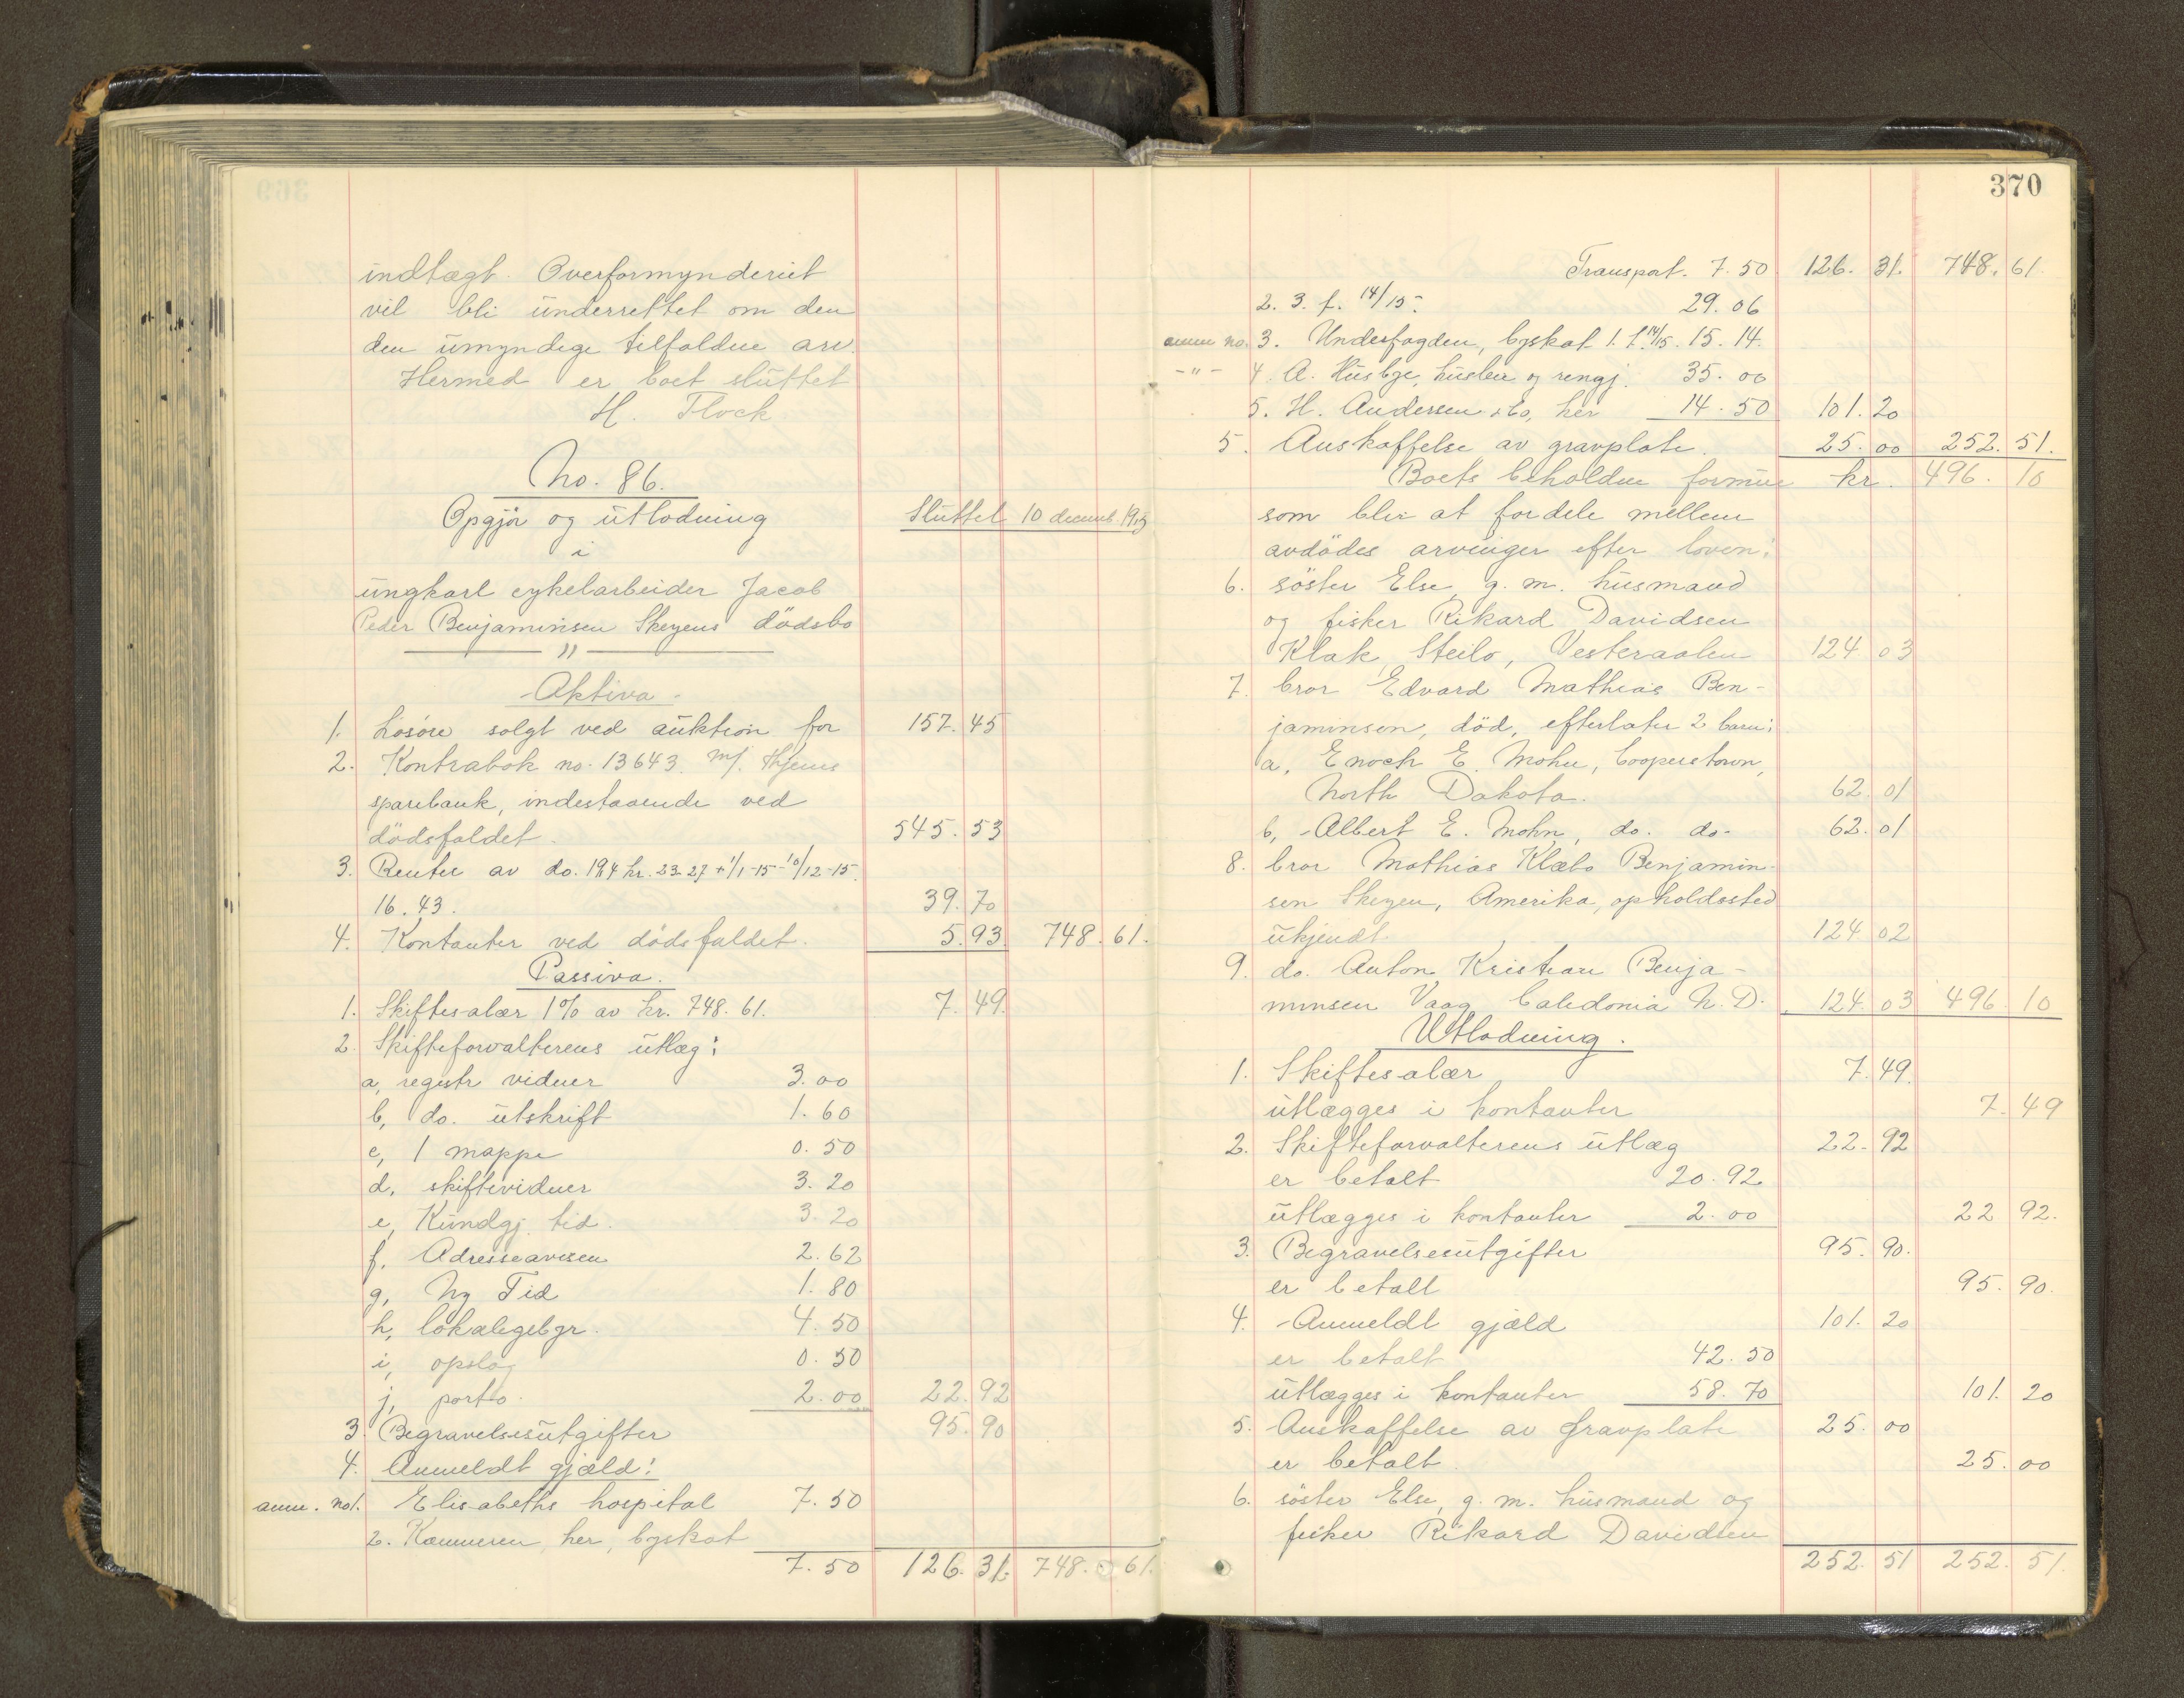 indtægt. Overformynderiet
vil bli underrettet om den
den umyndige tilfaldne arv.
Hermed er boet sluttet
H. Flock
No. 86.
Opgjör og utlodning Sluttet 10 decemb. 1915
i
ungkarl cykelarbeider Jacob
Peder Benjaminsen Skeyens dödsbo
"
Aktiva.
1. Lösöre solgt ved auktion for 157.45
2. Kontrabok no. 13643. m/.
sparebank, indestaaende ved
dödsfaldet. 545.53
3. Renter av do. 1914 kr. 23.27 + 1/1-15 - 10/12-15.
16.43. 39.70
4. Kontanter ved dödsfaldet. 5.93 748.61.
Passiva.
1. Skiftesalær 1% av kr. 748.61. 7.49.
2. Skifteforvalterens utlæg:
a, registr vidner 3.00
b, do. utskrift 1.60
c, 1 mappe 0.50
d. skiftevidner 3.20
e, Kundgj. tid. 3.20
f. Adresseavisen 2.62
g, Ny Tid 1.80
h, lokalegebyr. 4.50
i, opslag 0.50
j, porto. 2.00 22.92
3. Begravelsesutgifter 95.90
4. Anmeldt gjæld:
anm. no 1. Elisabeths hospital 7.50
2. Kæmneren, her, byskat
7.50 126.31. 748.61.
370
Transport. 7.50 126.31. 748.61.
2. 3. f. 14/15. 29.06
anm no. 3. Underfogden, byskat 1. f. 14/15. 15.14.
-"- 4. A. Husbye, husleie og rengj. 35.00
5. H. Andersen & Co, her 14.50 101.20
5. Anskaffelse av gravplate. 25.00 252.51.
Boets beholdne formue kr. 496.10
som blir at fordele mellem
avdödes arvinger efter loven:
6. söster Else, g. m. husmand
og fisker Rikard Davidsen
Klak, Steilo, Vesteraalen 124 03
7. bror Edvard Mathias Ben-
jaminsen, död, efterlater 2 barn:
a, Enoch E. Mohn, Cooperstown,
North Dakota. 62.01
b, Albert E. Mohn, do. do. 62.01
8. bror Mathias Klæbo Benjamin-
sen Skeyen, Amerika, opholdssted
ukjendt. 124 02
9. do. Anton Kristian Benja-
minsen Vaag, Caledonia N. D. 124.03 496.10
Utlodning.
1. Skiftesalær 7.49.
utlægges i kontanter 7.49
2. Skifteforvalterens utlæg 22.92
er betalt 20.92
utlægges i kontanter 2.00 22 92.
3. Begravelsesutgifter 95.90.
er betalt 95.90.
4. Anmeldt gjæld 101.20
er betalt 42.50
utlægges i kontanter 58.70 101.20
5. Anskaffelse av gravplate 25.00
er betalt. 25.00
6. söster Else, g. m. husmand og
fisker Rikard Davidsen
252.51 252.51.